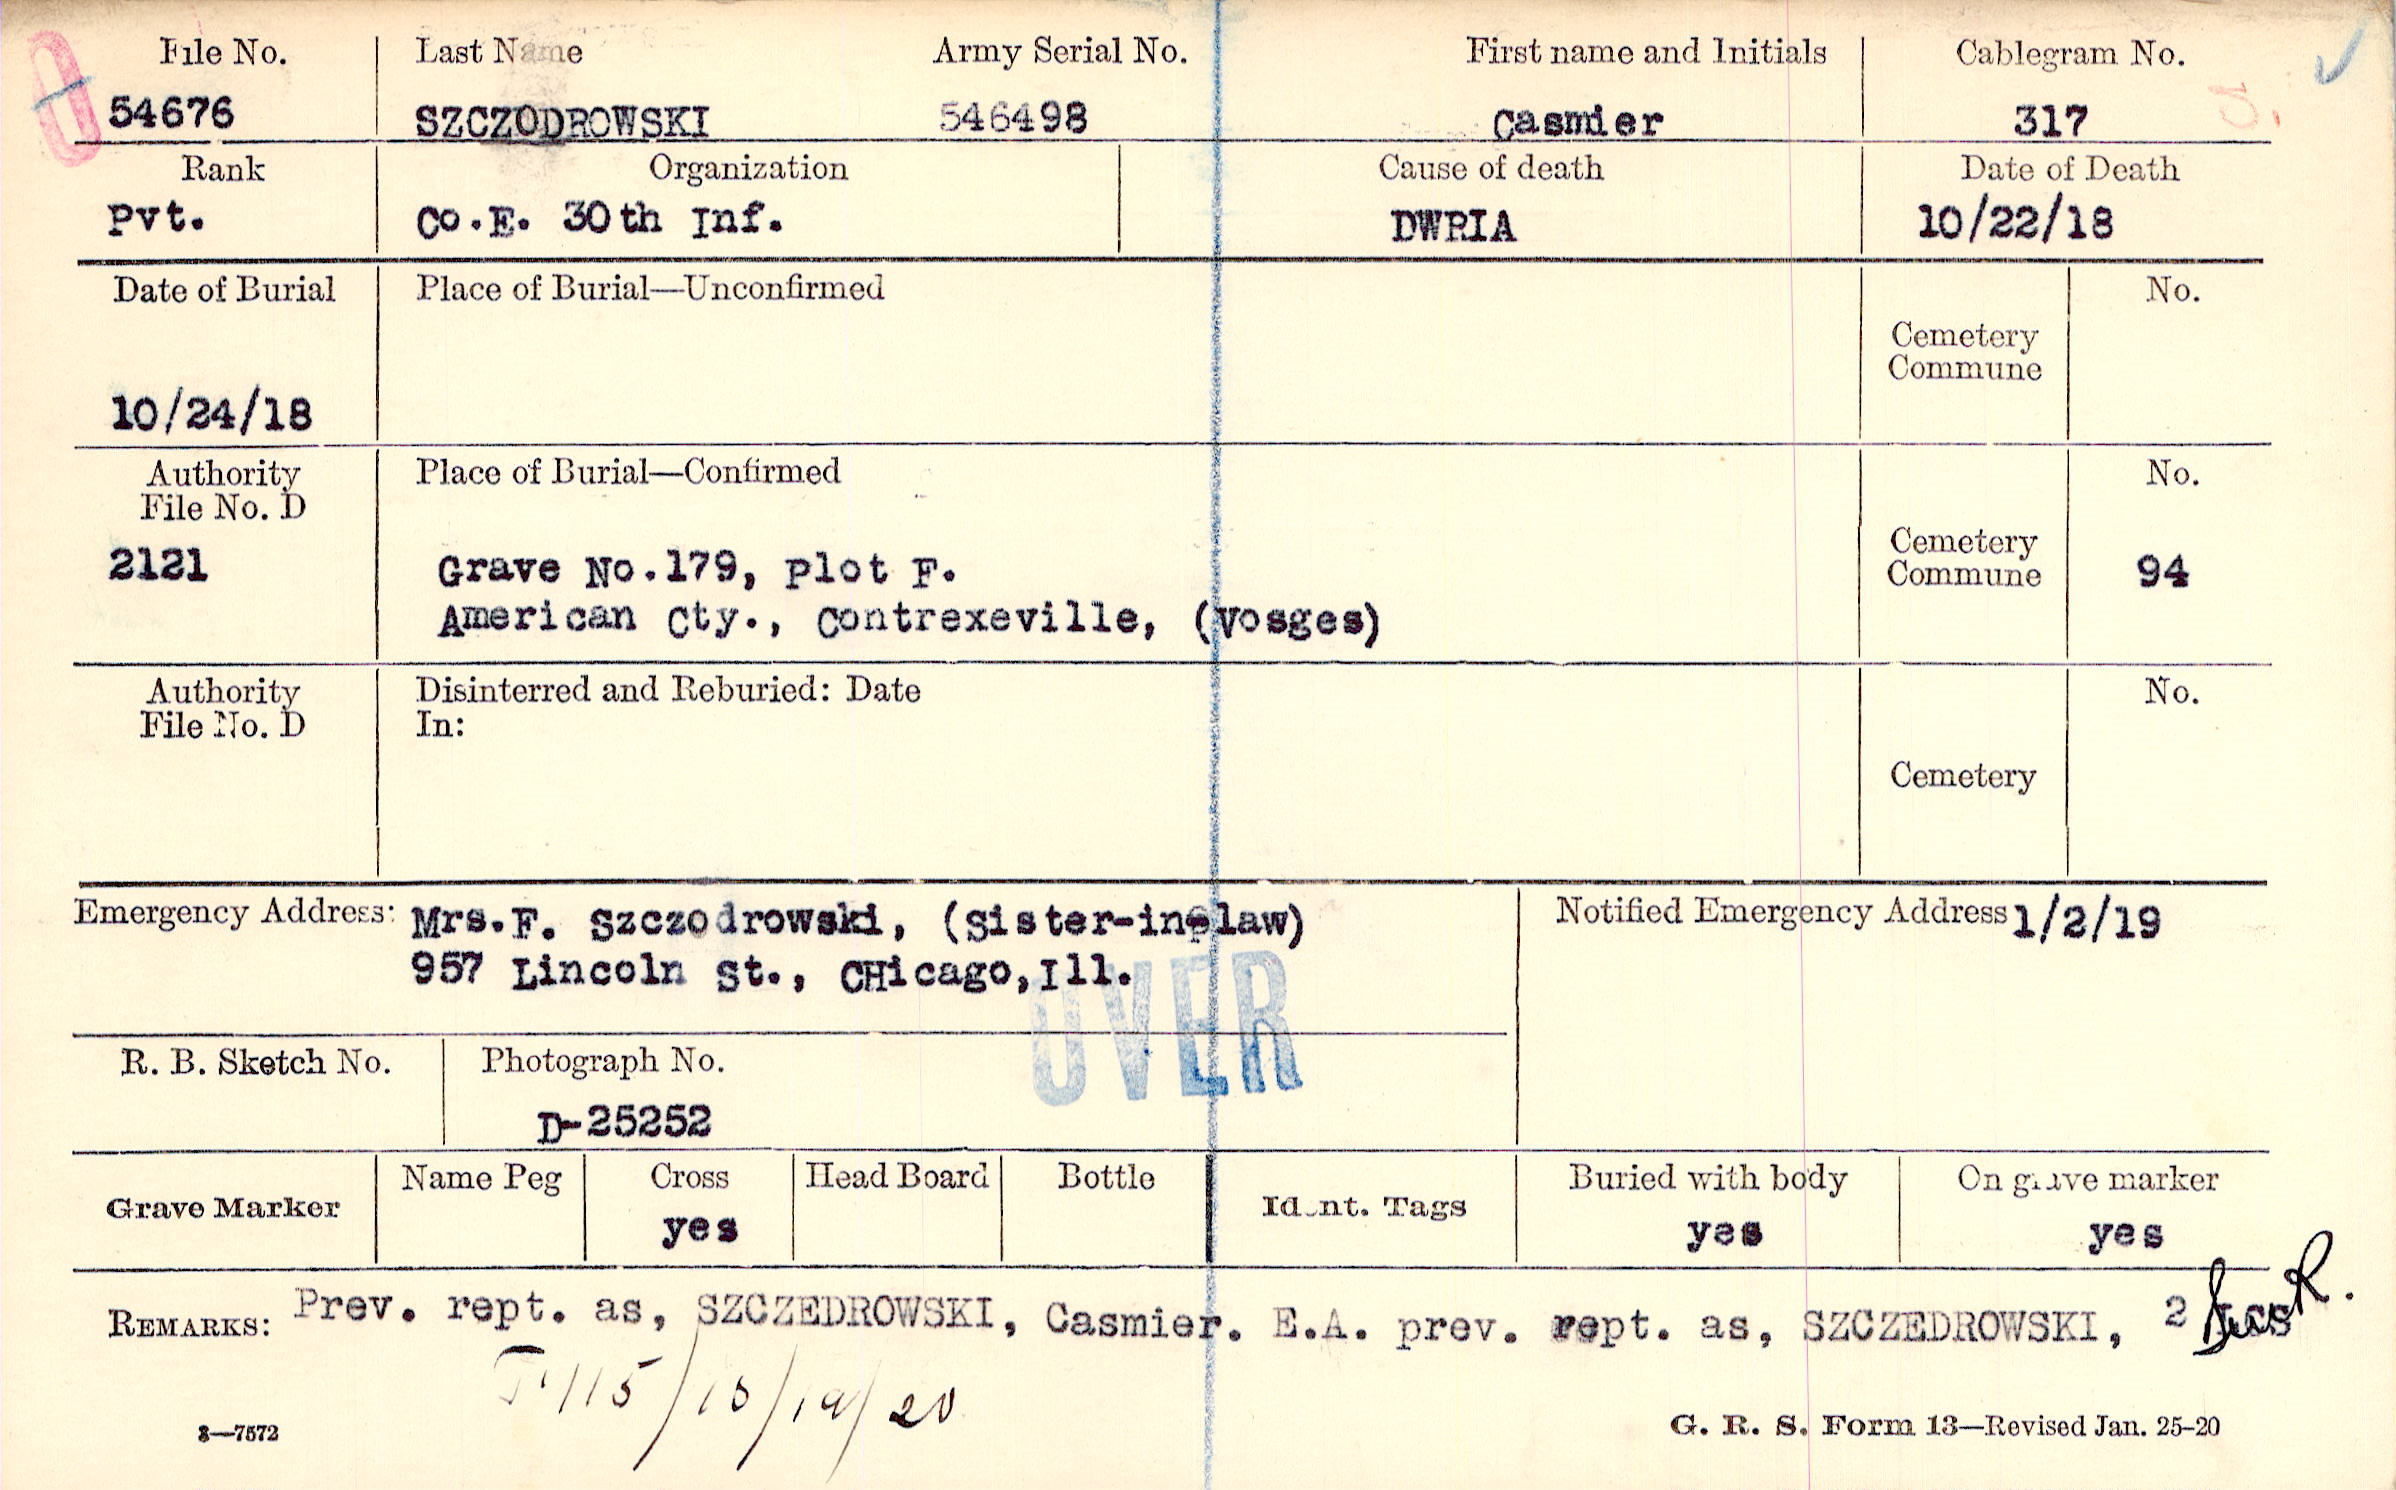 File No. Last Name Army Serial No. First name and Initials Cablegram No.
54676 SZCZODROWSKI 546498 Casmier 317
Rank Organization Cause of death Date of Death
Pvt. Co.E. 30th Inf. DWRIA 10/22/18
Date of Burial Place of Burial—Unconfirmed No.
Cemetery
Commune
10/24/18
Authority Place of Burial—Confirmed No.
File No. D
Cemetery
2121 Grave No.179, Plot F. Commune 94
American Cty., Contrexeville, (Vosges)
Authority Disinterred and Reburied: Date No.
File No. D In:
Cemetery
Emergency Address: Mrs.F. Szczodrowski, (Sister-in-law) Notified Emergency Address 1/2/19
957 Lincoln St., CHicago,Ill.
OVER
R. B. Sketch No. Photograph No.
D-25252
Grave Marker Name Peg Cross Head Board Bottle Ident. Tags Buried with body On grave marker
yes yes yes
REMARKS: Prev. rept. as, SZCZEDROWSKI, Casmier. E.A. prev. rept. as, SZCZEDROWSKI, 2
3—7572
G. R. S. Form 13—Revised Jan. 25-20